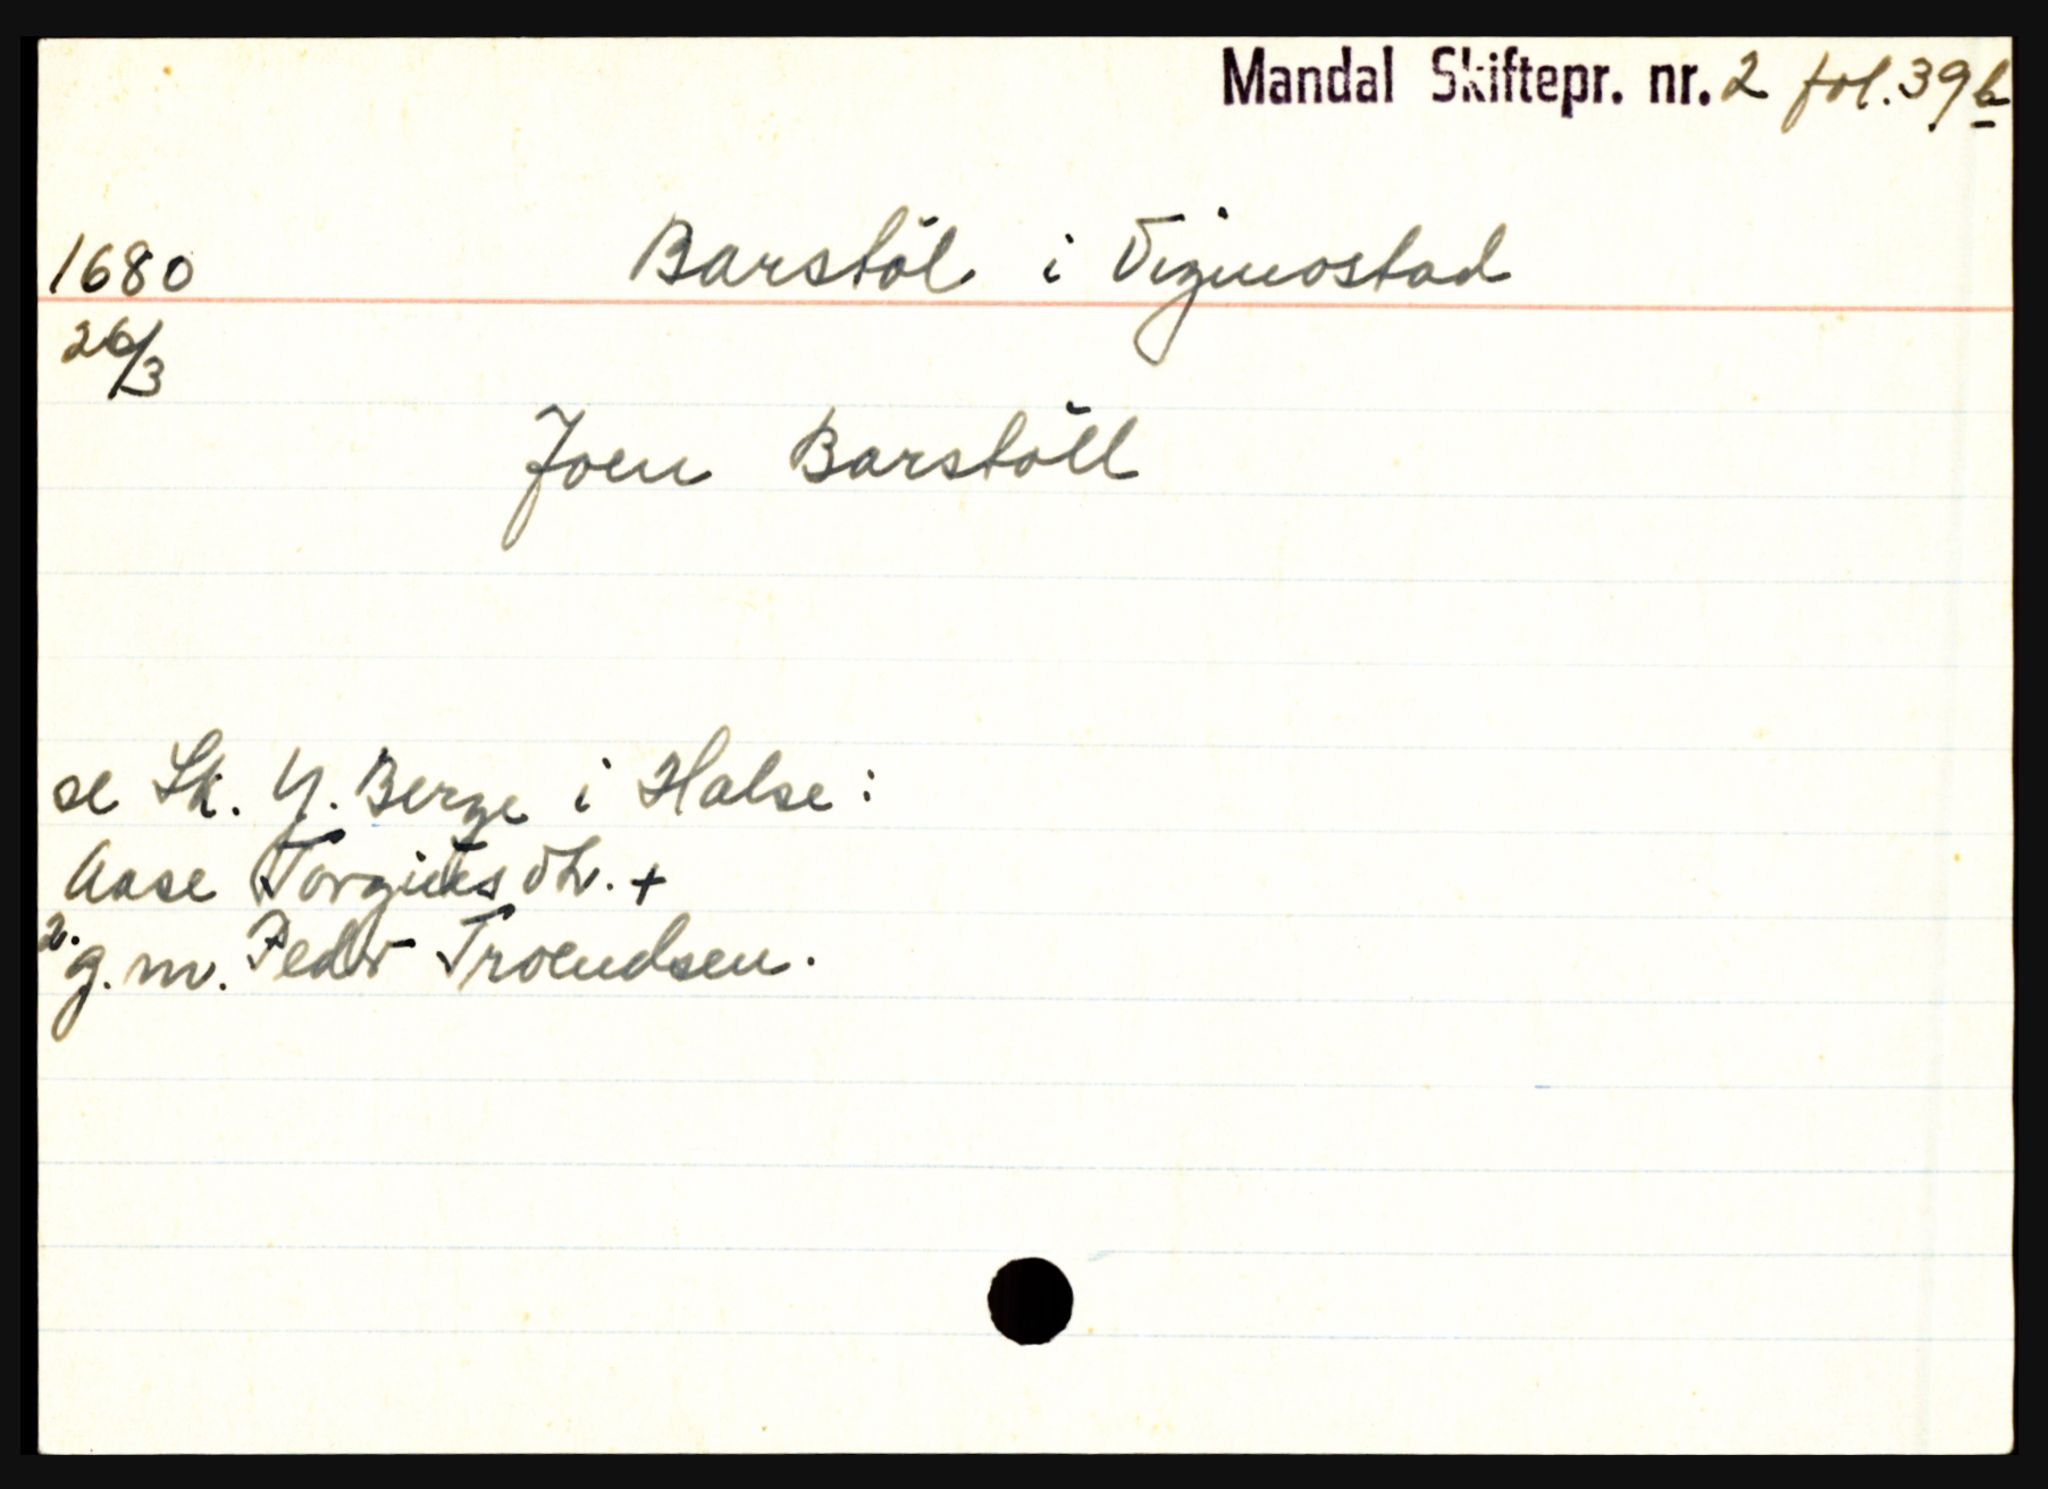 Mandal Skiftepr. nr. 2 fol. 39b
1680 Barstöl i Vigmostad
26/3
Joen Barstöll
se Sk. Y. Berge i Halse:
Aase Torgildsdtr. +
2. g.m. Peder Troendsen.